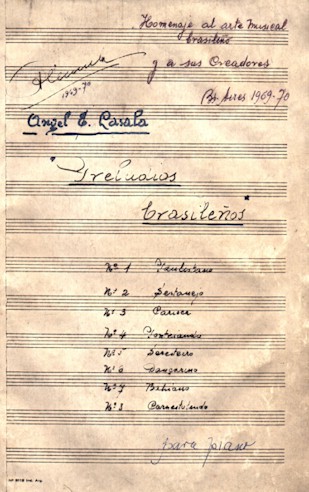 Homenaje al arte musical
brasileño
y a sus Creadores
Bs. Aires 1969-70
1969-70
Angel E. Lasala
"Preludios
brasileños"
Nº 1 Paulistano
Nº 2 Sertanejo
Nº 3 Carioca
Nº 4
Nº 5 Seresteiro
Nº 6
Nº 7 Bahiano
Nº 8
para piano